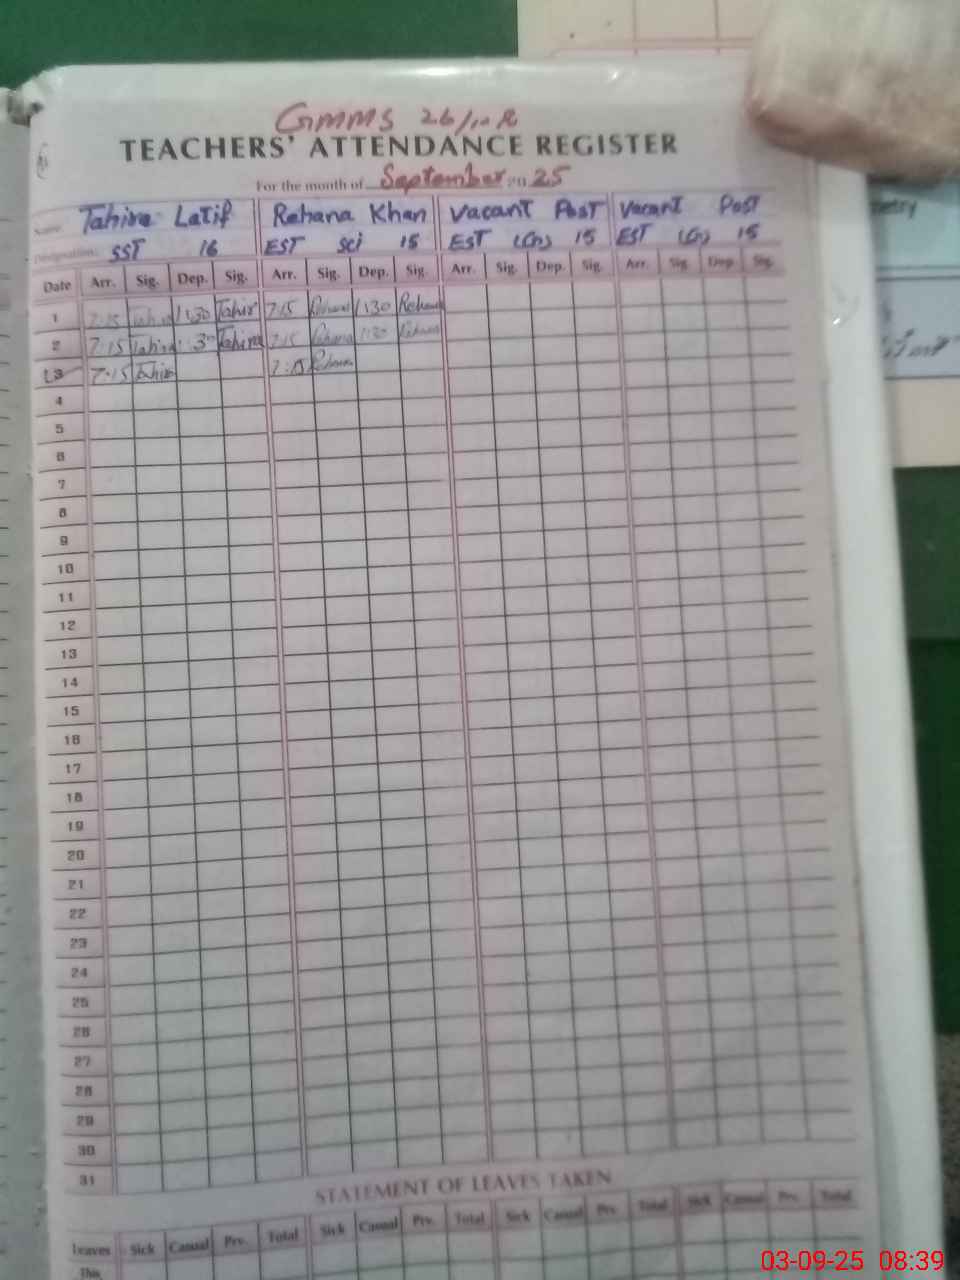 GMMS 26/10 R
TEACHERS' ATTENDANCE REGISTER
For the month of September 25
Name Tahira Latif Rehana Khan Vacant Post Vacant Post
Designation SST 16 EST Sci 15 EST (G) 15 EST (G) 15
Date Arr. Sig. Dep. Sig. Arr. Sig. Dep. Sig. Arr. Sig. Dep. Sig. Arr. Sig. Dep. Sig.
1 7:15 Tahira 1:30 Tahir 7:15 Rehana 1:30 Rehana
2 7:15 Tahira Tahira 7:15 Rehana 1:30 Rehana
3 7:15 Tahir 7:15 Rehana
4
5
6
7
8
9
10
11
12
13
14
15
16
17
18
19
20
21
22
23
24
25
26
27
28
29
30
31
STATEMENT OF LEAVES TAKEN
Leaves Sick Casual Prv. Total Sick Casual Prv. Total Sick Casual Prv. Total Sick Casual Prv. Total
This
03-09-25 08:39